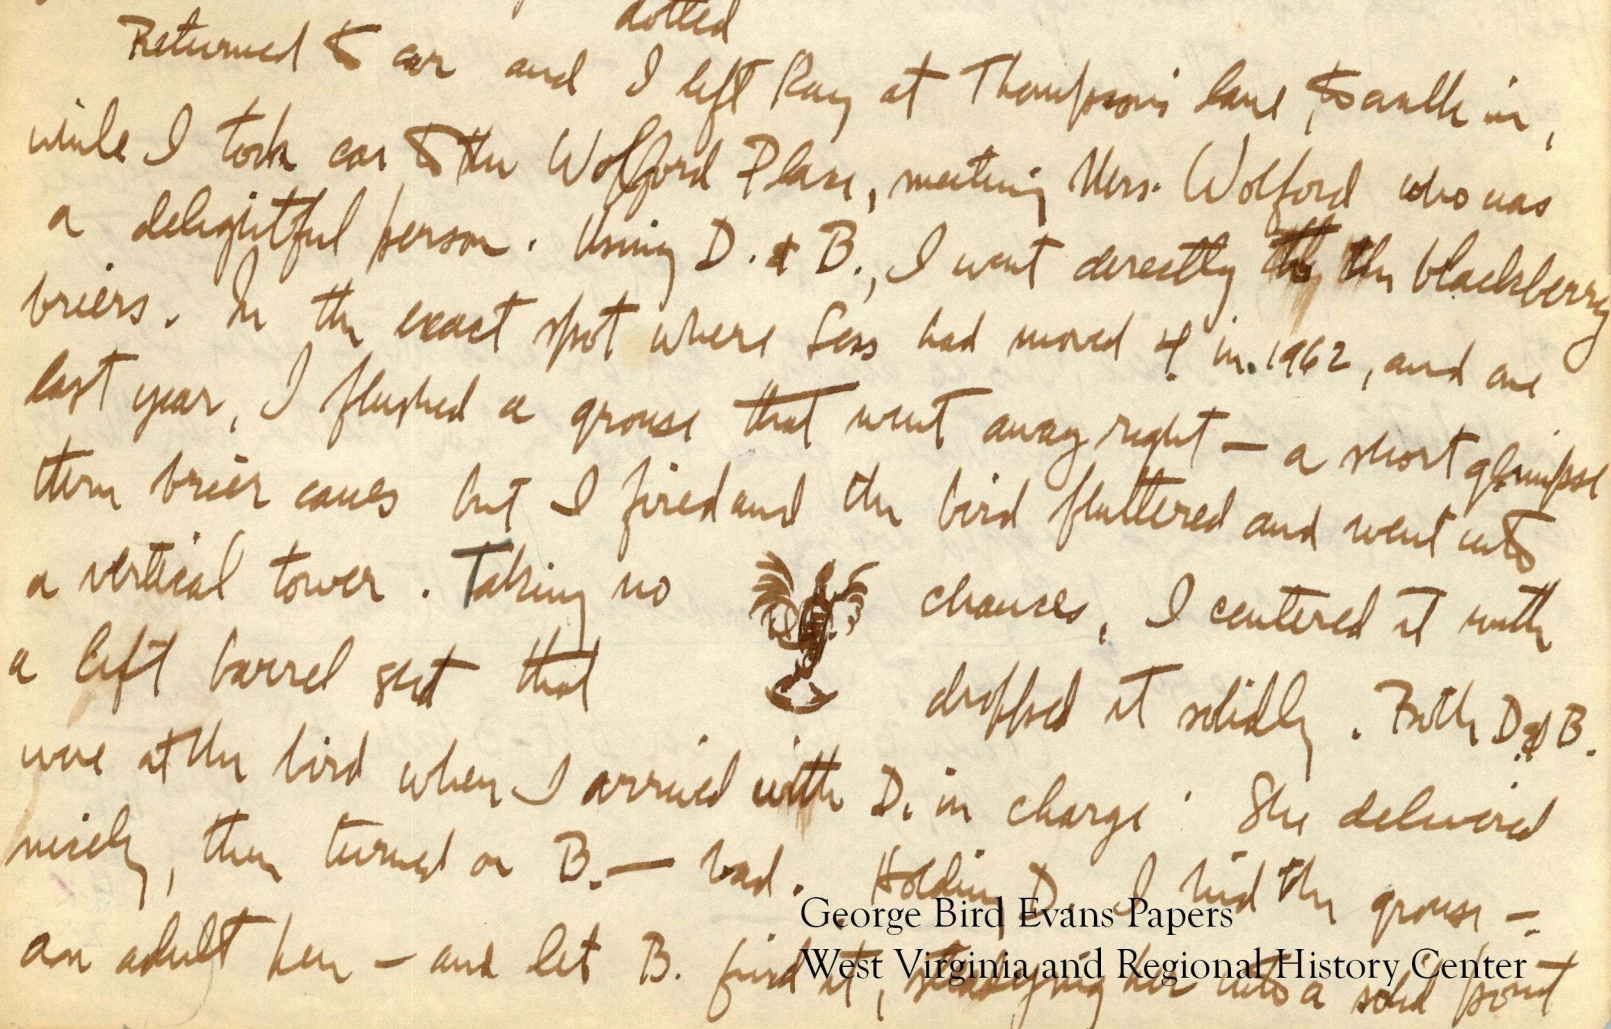 dotted
Returned to car and I left Kay at Thompson's lane, to walk in,
while I took car to the Wolford Place, meeting Mrs. Wolford who was
a delightful person. Using D. & B., I went directly to the blackberry
briers. In the exact spot where Sess had moved 4 in 1962, and one
last year, I flushed a grouse that went away right — a short glimpse
thru brier canes but I fired and the bird fluttered and went into
a vertical tower. Taking no chances, I centered it with
a left barrel shot that dropped it solidly. Both D & B.
were at the bird when I arrived with D. in charge. She delivered
nicely, then turned on B. — bad. Holding D. I hid the grouse —
an adult hen — and let B. find it, steadying her into a solid point
George Bird Evans Papers
West Virginia and Regional History Center